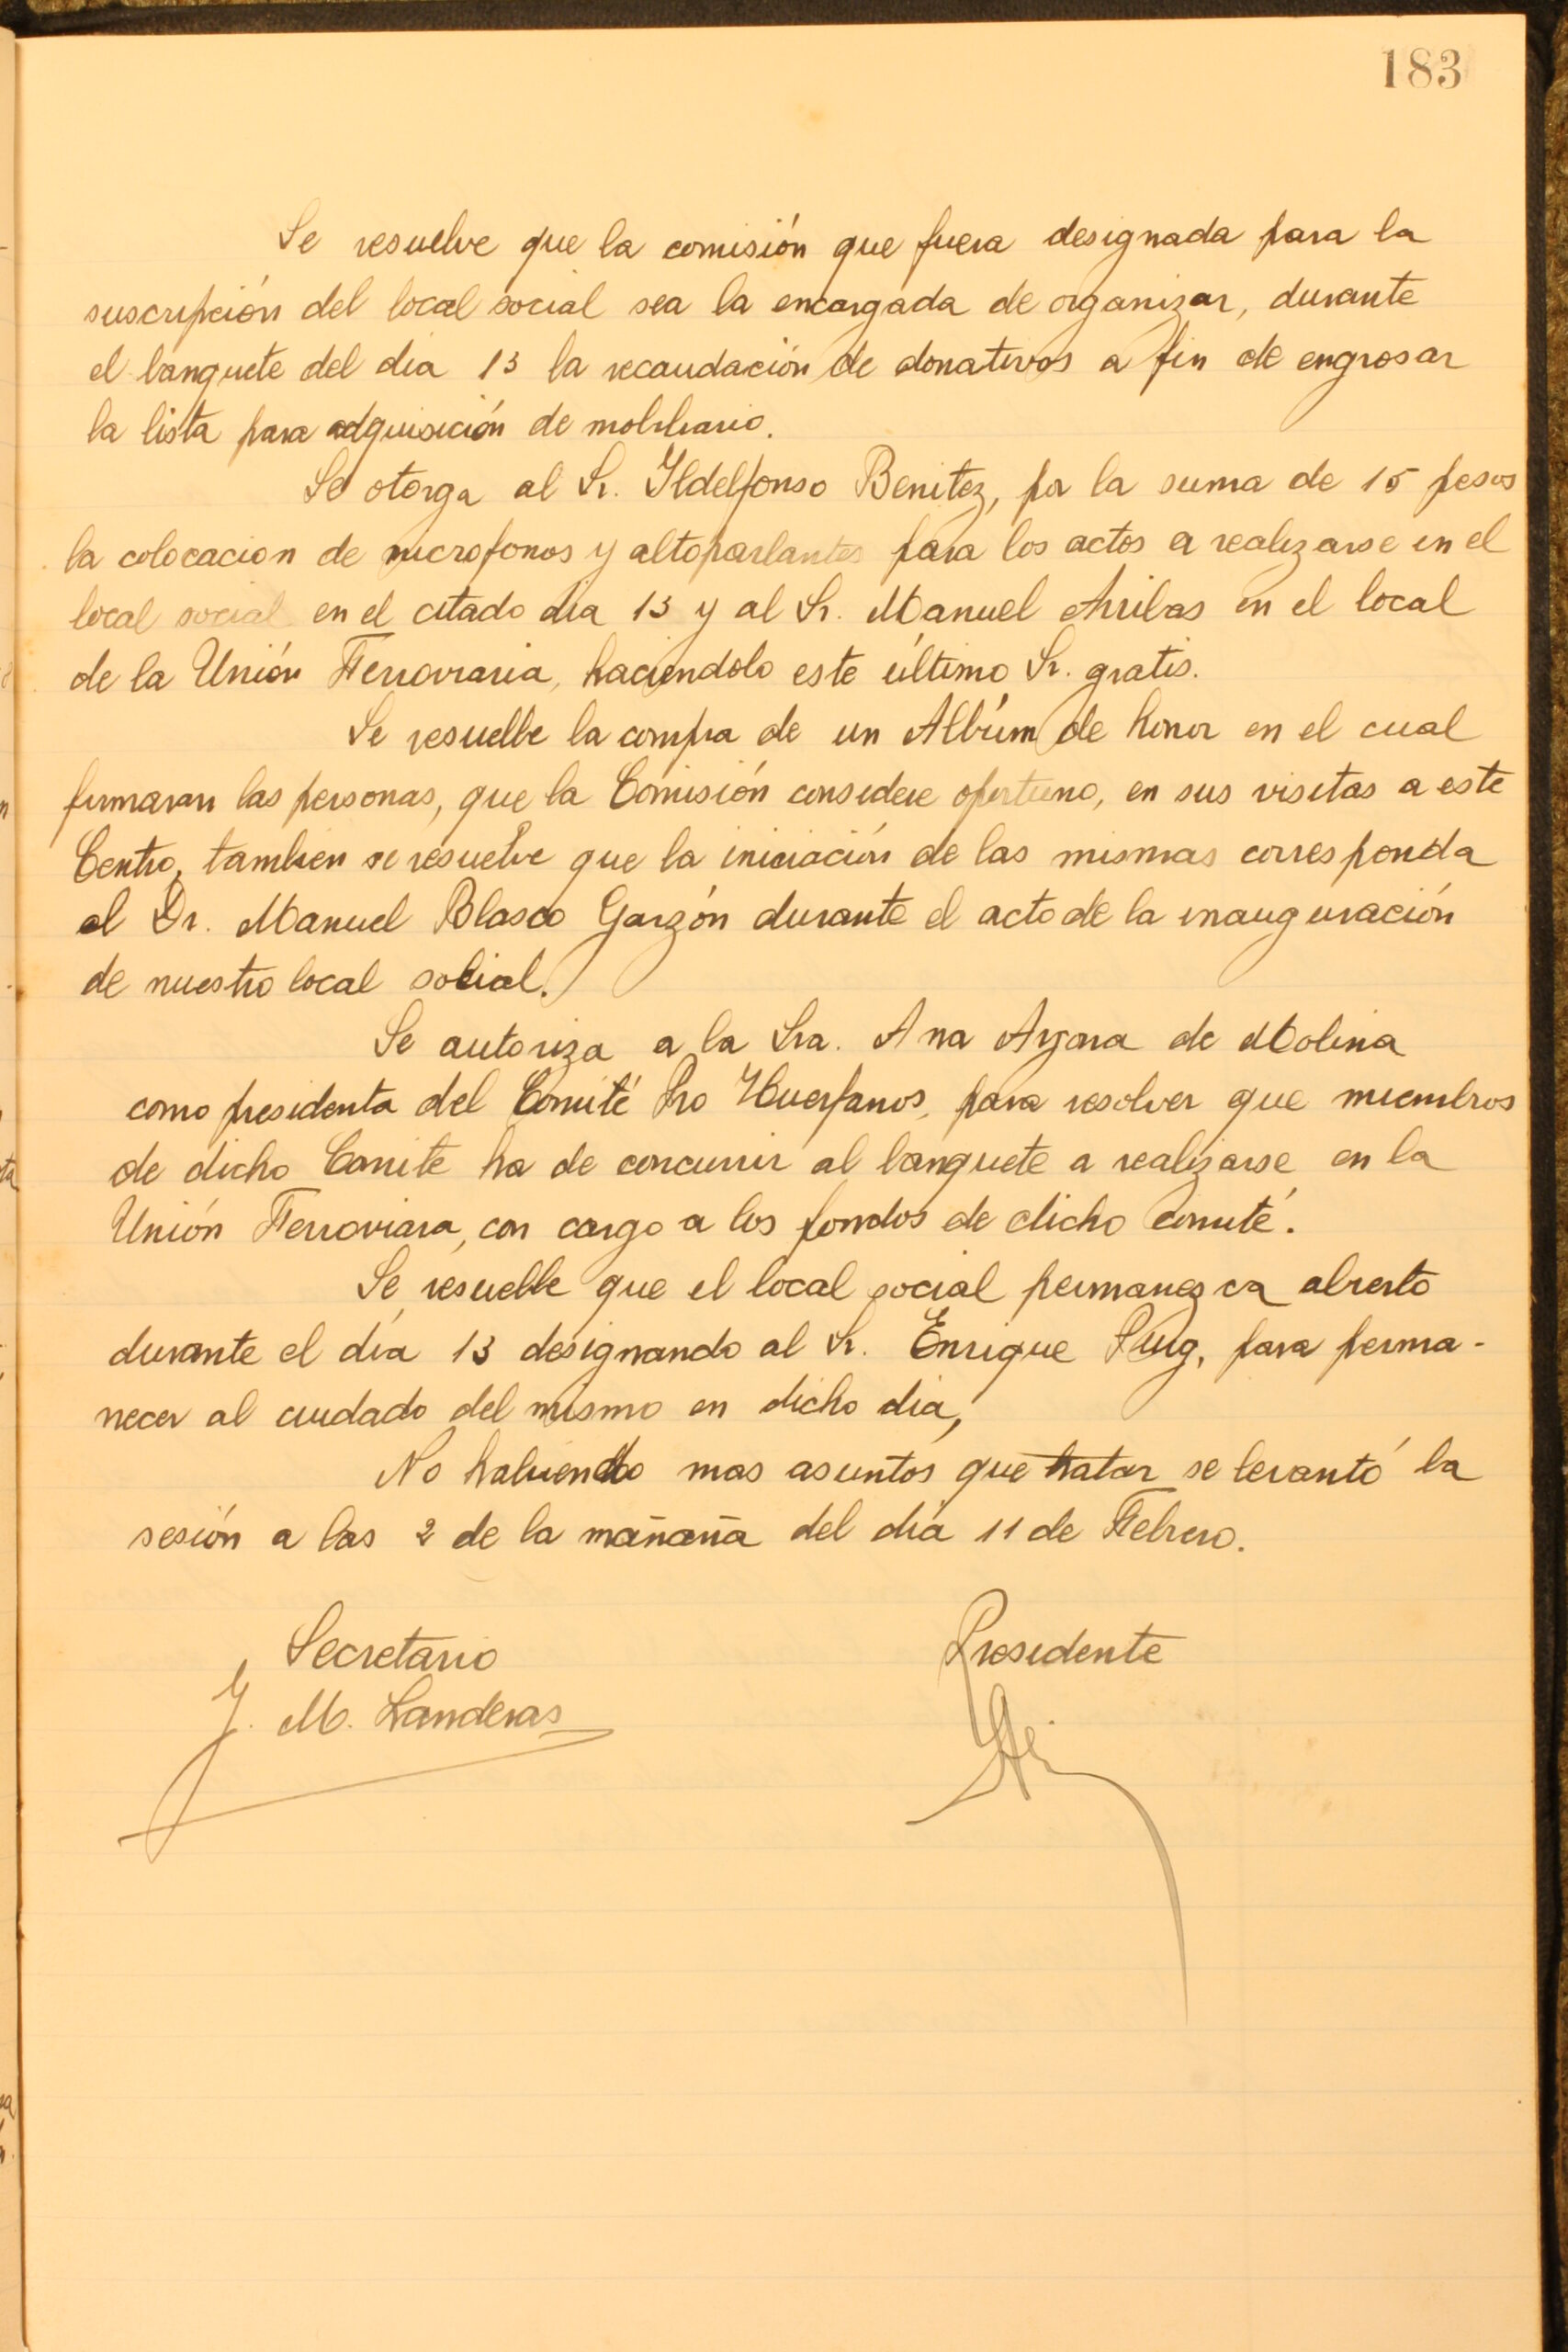 183
Se resuelve que la comisión que fuera designada para la
suscripción del local social sea la encargada de organizar, durante
el banquete del dia 13 la recaudación de donativos a fin de engrosar
la lista para adquisición de mobiliario.
Se otorga al Sr. Ildelfonso Benitez, por la suma de 15 pesos
la colocacion de microfonos y altoparlantes para los actos a realizarse en el
local social en el citado dia 13 y al Sr. Manuel Arribas en el local
de la Unión Ferroviaria, haciendolo este último Sr. gratis.
Se resuelbe la compra de un Albúm de honor en el cual
firmaran las personas, que la Comisión considere oportuno, en sus visitas a este
Centro, tambien se resuelve que la iniciación de las mismas corresponda
al Dr. Manuel Blasco Garzón durante el acto de la inauguración
de nuestro local social.
Se autoriza a la Sra. Ana de Molina
como presidenta del Comité Pro Huerfanos, para resolver que miembros
de dicho Comite ha de concurrir al banquete a realizarse en la
Unión Ferroviara, con cargo a los fondos de dicho comité.
Se resuelbe que el local social permanezca abierto
durante el día 13 designando al Sr. Enrique Puig, para perma-
necer al cuidado del mismo en dicho dia,
No habiendo mas asuntos que tratar se levantó la
sesión a las 2 de la mañana del día 11 de Febrero.
Secretario
Presidente
J. M. Landeras